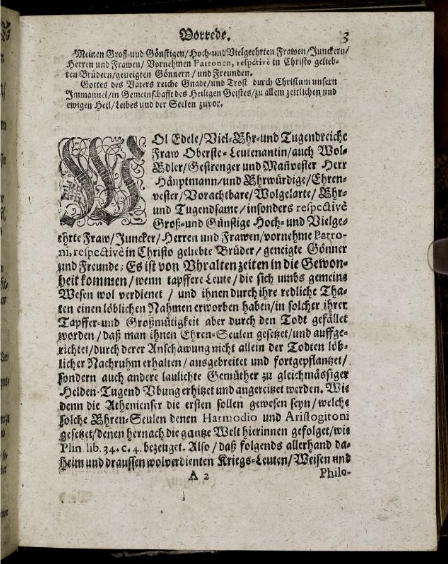 Vorrede. 3
Meinen Groß-und Günstigen/Hoch-und Vielgeehrten Frawen/Junckern/
Herren und Frawen/ Vornehmen Patronen, respectivè in Christo gelieb-
ten Brüdern/geneigten Gönnern/ und Freunden.
Gottes des Vaters reiche Gnade/und Trost durch Christum unsern
Immanuel/in Gemeinschafft des Heiligen Geistes/zu allem zeitlichen und
ewigen Heil/Leibes und der Seelen zuvor.
WOl Edele/Viel-Ehr-und Tugendreiche
Fraw Oberste-Leutenantin/auch Wol-
Edler/Gestrenger und Mañvester Herr
Häuptmann/und Ehrwürdige/Ehren-
vester/Vorachtbare/Wolgelarte/Ehr-
und Tugendsame/insonders respectivè
Groß-und Günstige Hoch-und Vielge-
ehrte Fraw/Juncker/Herren und Frawen/vornehme Patro-
ni, respectivè in Christo geliebte Brüder/ geneigte Gönner
und Freunde: Es ist von Uhralten zeiten in die Gewon-
heit kommen/wenn tapffere Leute/die sich umbs gemeine
Wesen wol verdienet / und ihnen durch ihre redliche Tha-
ten einen löblichen Nahmen erworben haben/in solcher ihrer
Tapffer-und Großmütigkeit aber durch den Todt gefället
worden/daß man ihnen Ehren-Seulen gesetzet/und auffge-
richtet/durch derer Anschawung nicht allein der Todten löb-
licher Nachruhm erhalten/ausgebreitet und fortgepflantzet/
sondern auch andere laulichte Gemüther zu gleichmässiger
Helden-Tugend Ubung erhitzet und angereitzet werden. Wie
denn die Athenienser die ersten sollen gewesen seyn/welche
solche Ehren-Seulen denen Harmodio und Aristogitoni
gesetzet/denen hernach die gantze Welt hierinnen gefolget/wie
Plin lib. 34. c. 4. bezeuget. Also/daß folgends allerhand da-
heim und draussen wolverdienten Kriegs-Leuten/Weisen und
A 2 Philo-